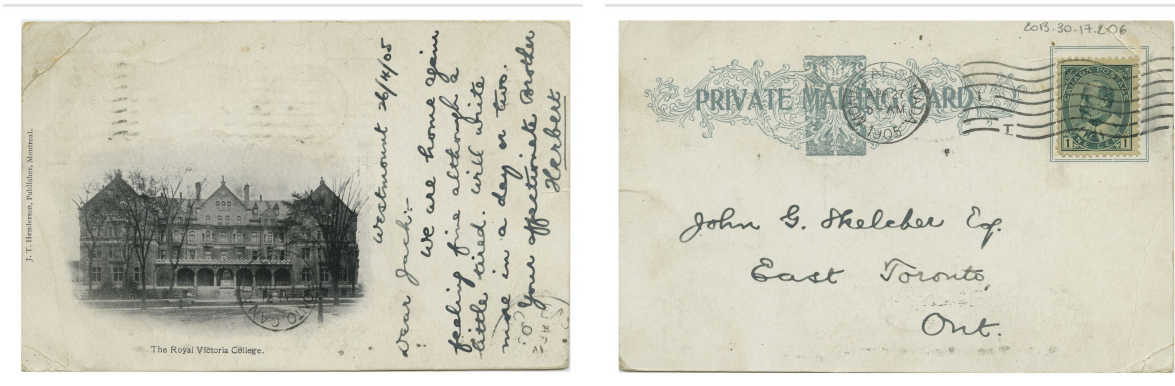 J. T. Henderson, Publisher, Montreal.
The Royal Victoria College.
Westmount 26/4/05
Dear Jack:-
We are home again
feeling fine although a
little tired. will write
more in a day or two.
Your affectionate Brother
Herbert
2013.30.17.206
PRIVATE MAILING CARD
1905
CANADA POSTAGE
1 1
John G. Skelcher Esq.
East Toronto
Ont.